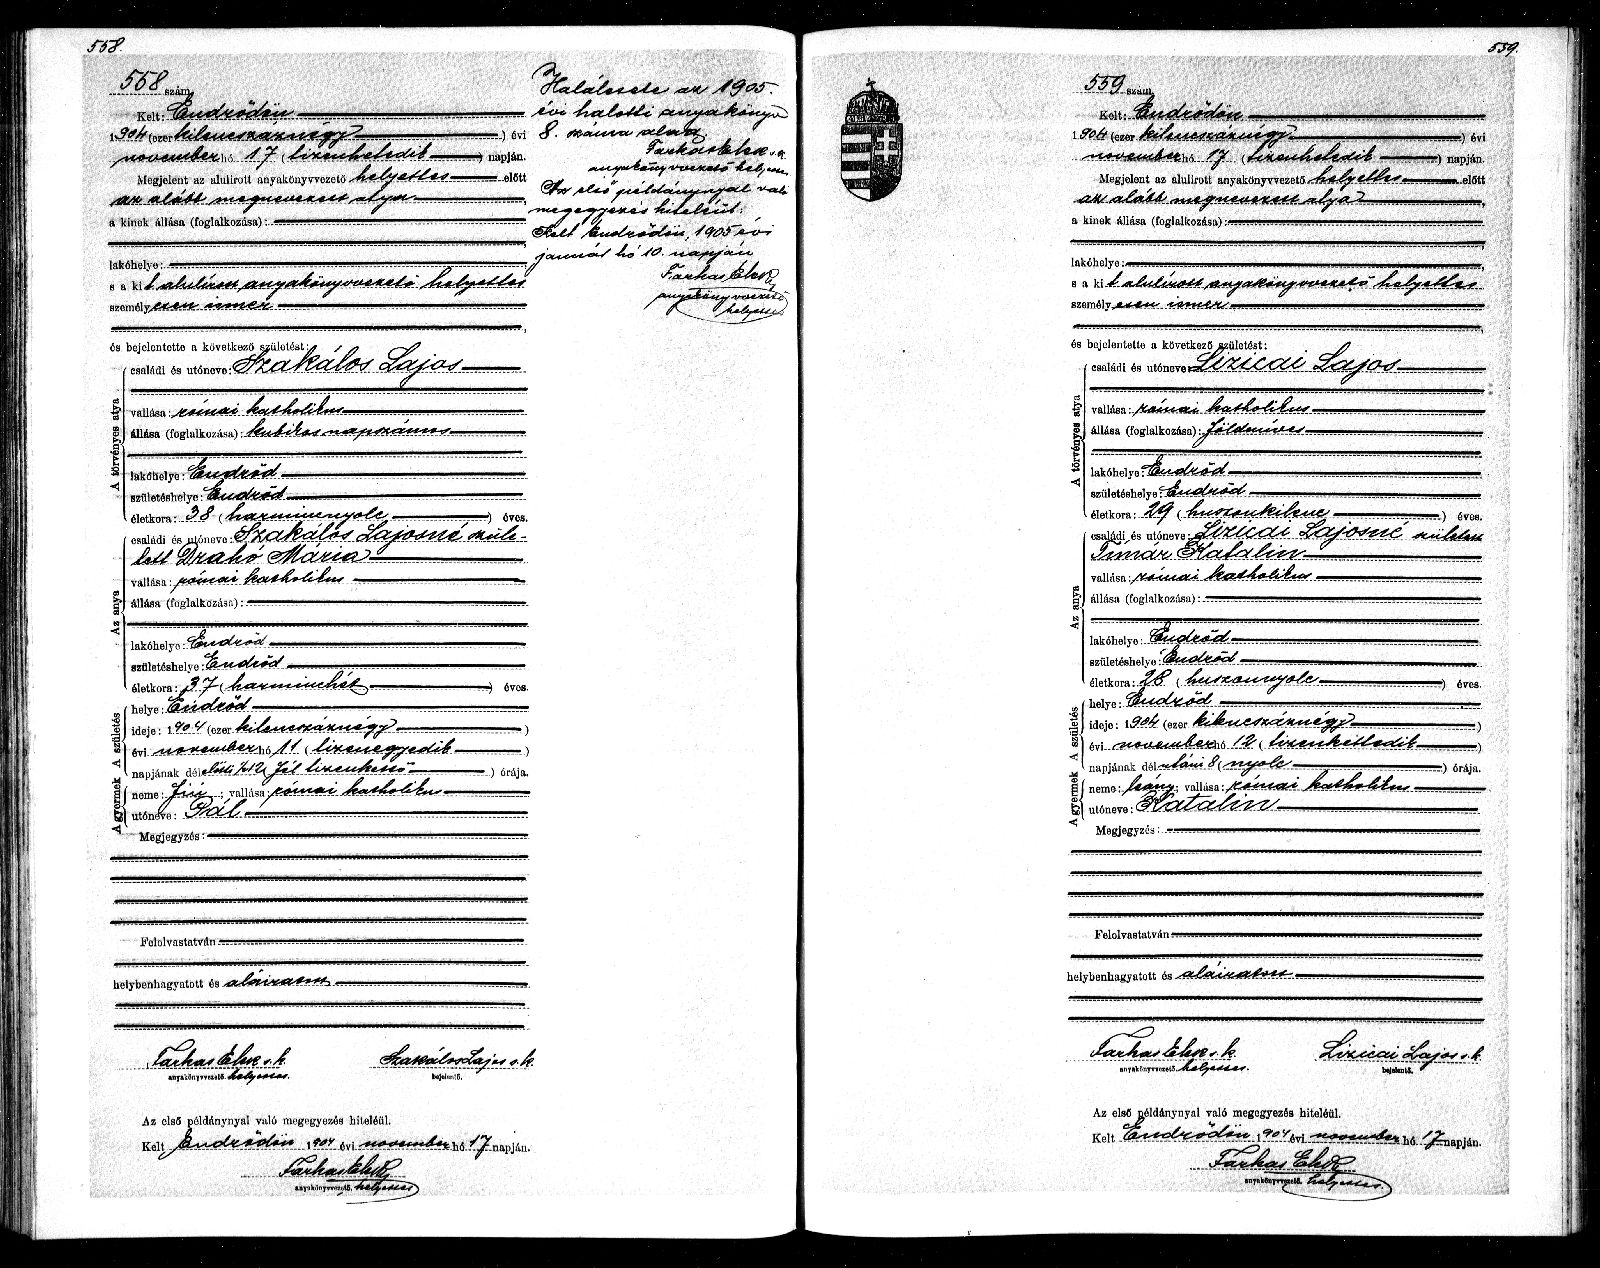 558.
558 szám
Kelt: Endrődön
1904 (ezer kilencszáznégy) évi
november hó 17 (tizenhetedik) napján.
Megjelent az alulirott anyakönyvvezető helyettes előtt
az alább megnevezett atya,
a kinek állása (foglalkozása):
lakóhelye:
s a kit alulírott anyakönyvvezető helyettes
személyesen ismer
és bejelentette a következő születést:
A törvényes atya
családi és utóneve: Szakálos Lajos
vallása: római katholikus
állása (foglalkozása): kubikos napszámos
lakóhelye: Endrőd
születéshelye: Endrőd
életkora: 38 (harmincnyolc) éves.
Az anya
családi és utóneve: Szakálos Lajosné szüle-
tett Drahó Mária
vallása: római katholikus
állása (foglalkozása):
lakóhelye: Endrőd
születéshelye: Endrőd
életkora: 37 (harminchét) éves.
A születés
helye: Endrőd
ideje: 1904 (ezer kilencszáznégy)
évi november hó 11 (tizenegyedik)
napjának délelőtti ½12 (fél tizenkettő) órája.
A gyermek
neme: fiú; vallása: római katholikus
utóneve: Pál
Megjegyzés:
Felolvastatván
helybenhagyatott és aláiratott
Farkas Elek s. k.
anyakönyvvezető. helyettes.
Szakálos Lajos s. k.
bejelentő.
Az első példánynyal való megegyezés hiteléül.
Kelt Endrődön 1904 évi november hó 17 napján.
Farkas Elek
anyakönyvvezető. helyettes.
Halálesete az 1905.
évi halotti anyakönyv
8. száma alatt
Farkas Elek s. k.
anyakönyvvezető helyettes
Az első példánynyal való
megegyezés hiteléül:
Kelt Endrődön, 1905 évi
január hó 10. napján
Farkas Elek
anyakönyvvezető
helyettes
559.
559 szám
Kelt: Endrődön
1904 (ezer kilencszáznégy) évi
november hó 17 (tizenhetedik) napján.
Megjelent az alulirott anyakönyvvezető helyettes előtt
az alább megnevezett atya,
a kinek állása (foglalkozása):
lakóhelye:
s a kit alulírott anyakönyvvezető helyettes
személyesen ismer
és bejelentette a következő születést:
A törvényes atya
családi és utóneve: Lizicai Lajos
vallása: római katholikus
állása (foglalkozása): földmíves
lakóhelye: Endrőd
születéshelye: Endrőd
életkora: 29 (huszonkilenc) éves.
Az anya
családi és utóneve: Lizicai Lajosné született
Timár Katalin
vallása: római katholikus
állása (foglalkozása):
lakóhelye: Endrőd
születéshelye: Endrőd
életkora: 28 (huszonnyolc) éves.
A születés
helye: Endrőd
ideje: 1904 (ezer kilencszáznégy)
évi november hó 12 (tizenkettedik)
napjának délutáni 8 (nyolc) órája.
A gyermek
neme: leány; vallása: római katholikus
utóneve: Katalin
Megjegyzés:
Felolvastatván
helybenhagyatott és aláiratott
Farkas Elek s. k.
anyakönyvvezető. helyettes.
Lizicai Lajos s. k.
bejelentő.
Az első példánynyal való megegyezés hiteléül.
Kelt Endrődön 1904 évi november hó 17 napján.
Farkas Elek
anyakönyvvezető. helyettes.